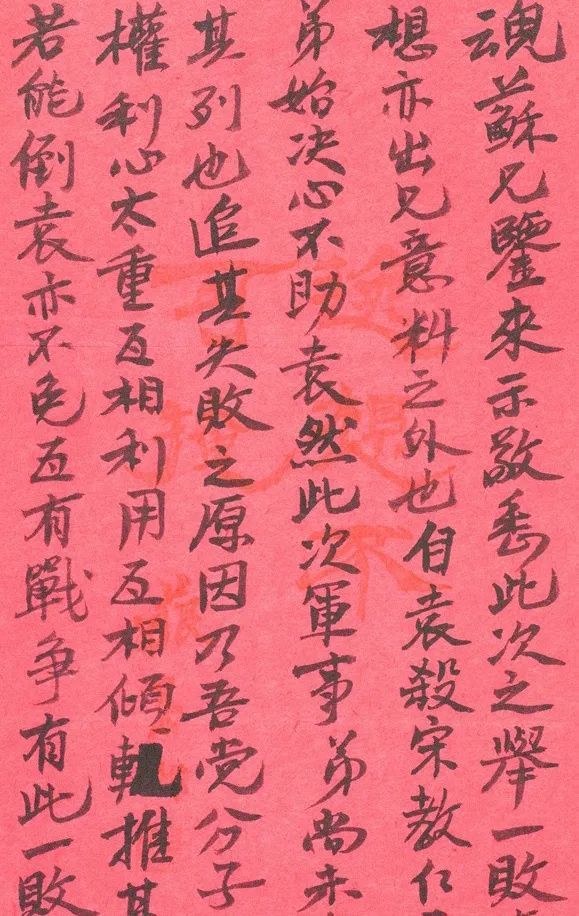 魂蘇兄鑒來示敬悉此次之舉一敗
想亦出兄意料之外也自袁殺宋教仁
弟始决心不助袁然此次軍事弟尚未
其列也追其失敗之原因乃吾党分子
權利心太重互相利用互相傾軋推其
若能倒袁亦不免互有戰争有此一敗